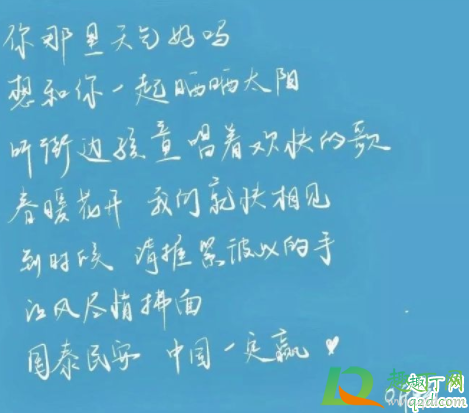 你那里天气好吗
想和你一起晒晒太阳
听街边孩童唱着欢快的歌
春暖花开 我们就快相见
到时候 请握紧彼此的手
让风尽情拂面
国泰民安 中国一定赢
趣丁网
qu2d.com